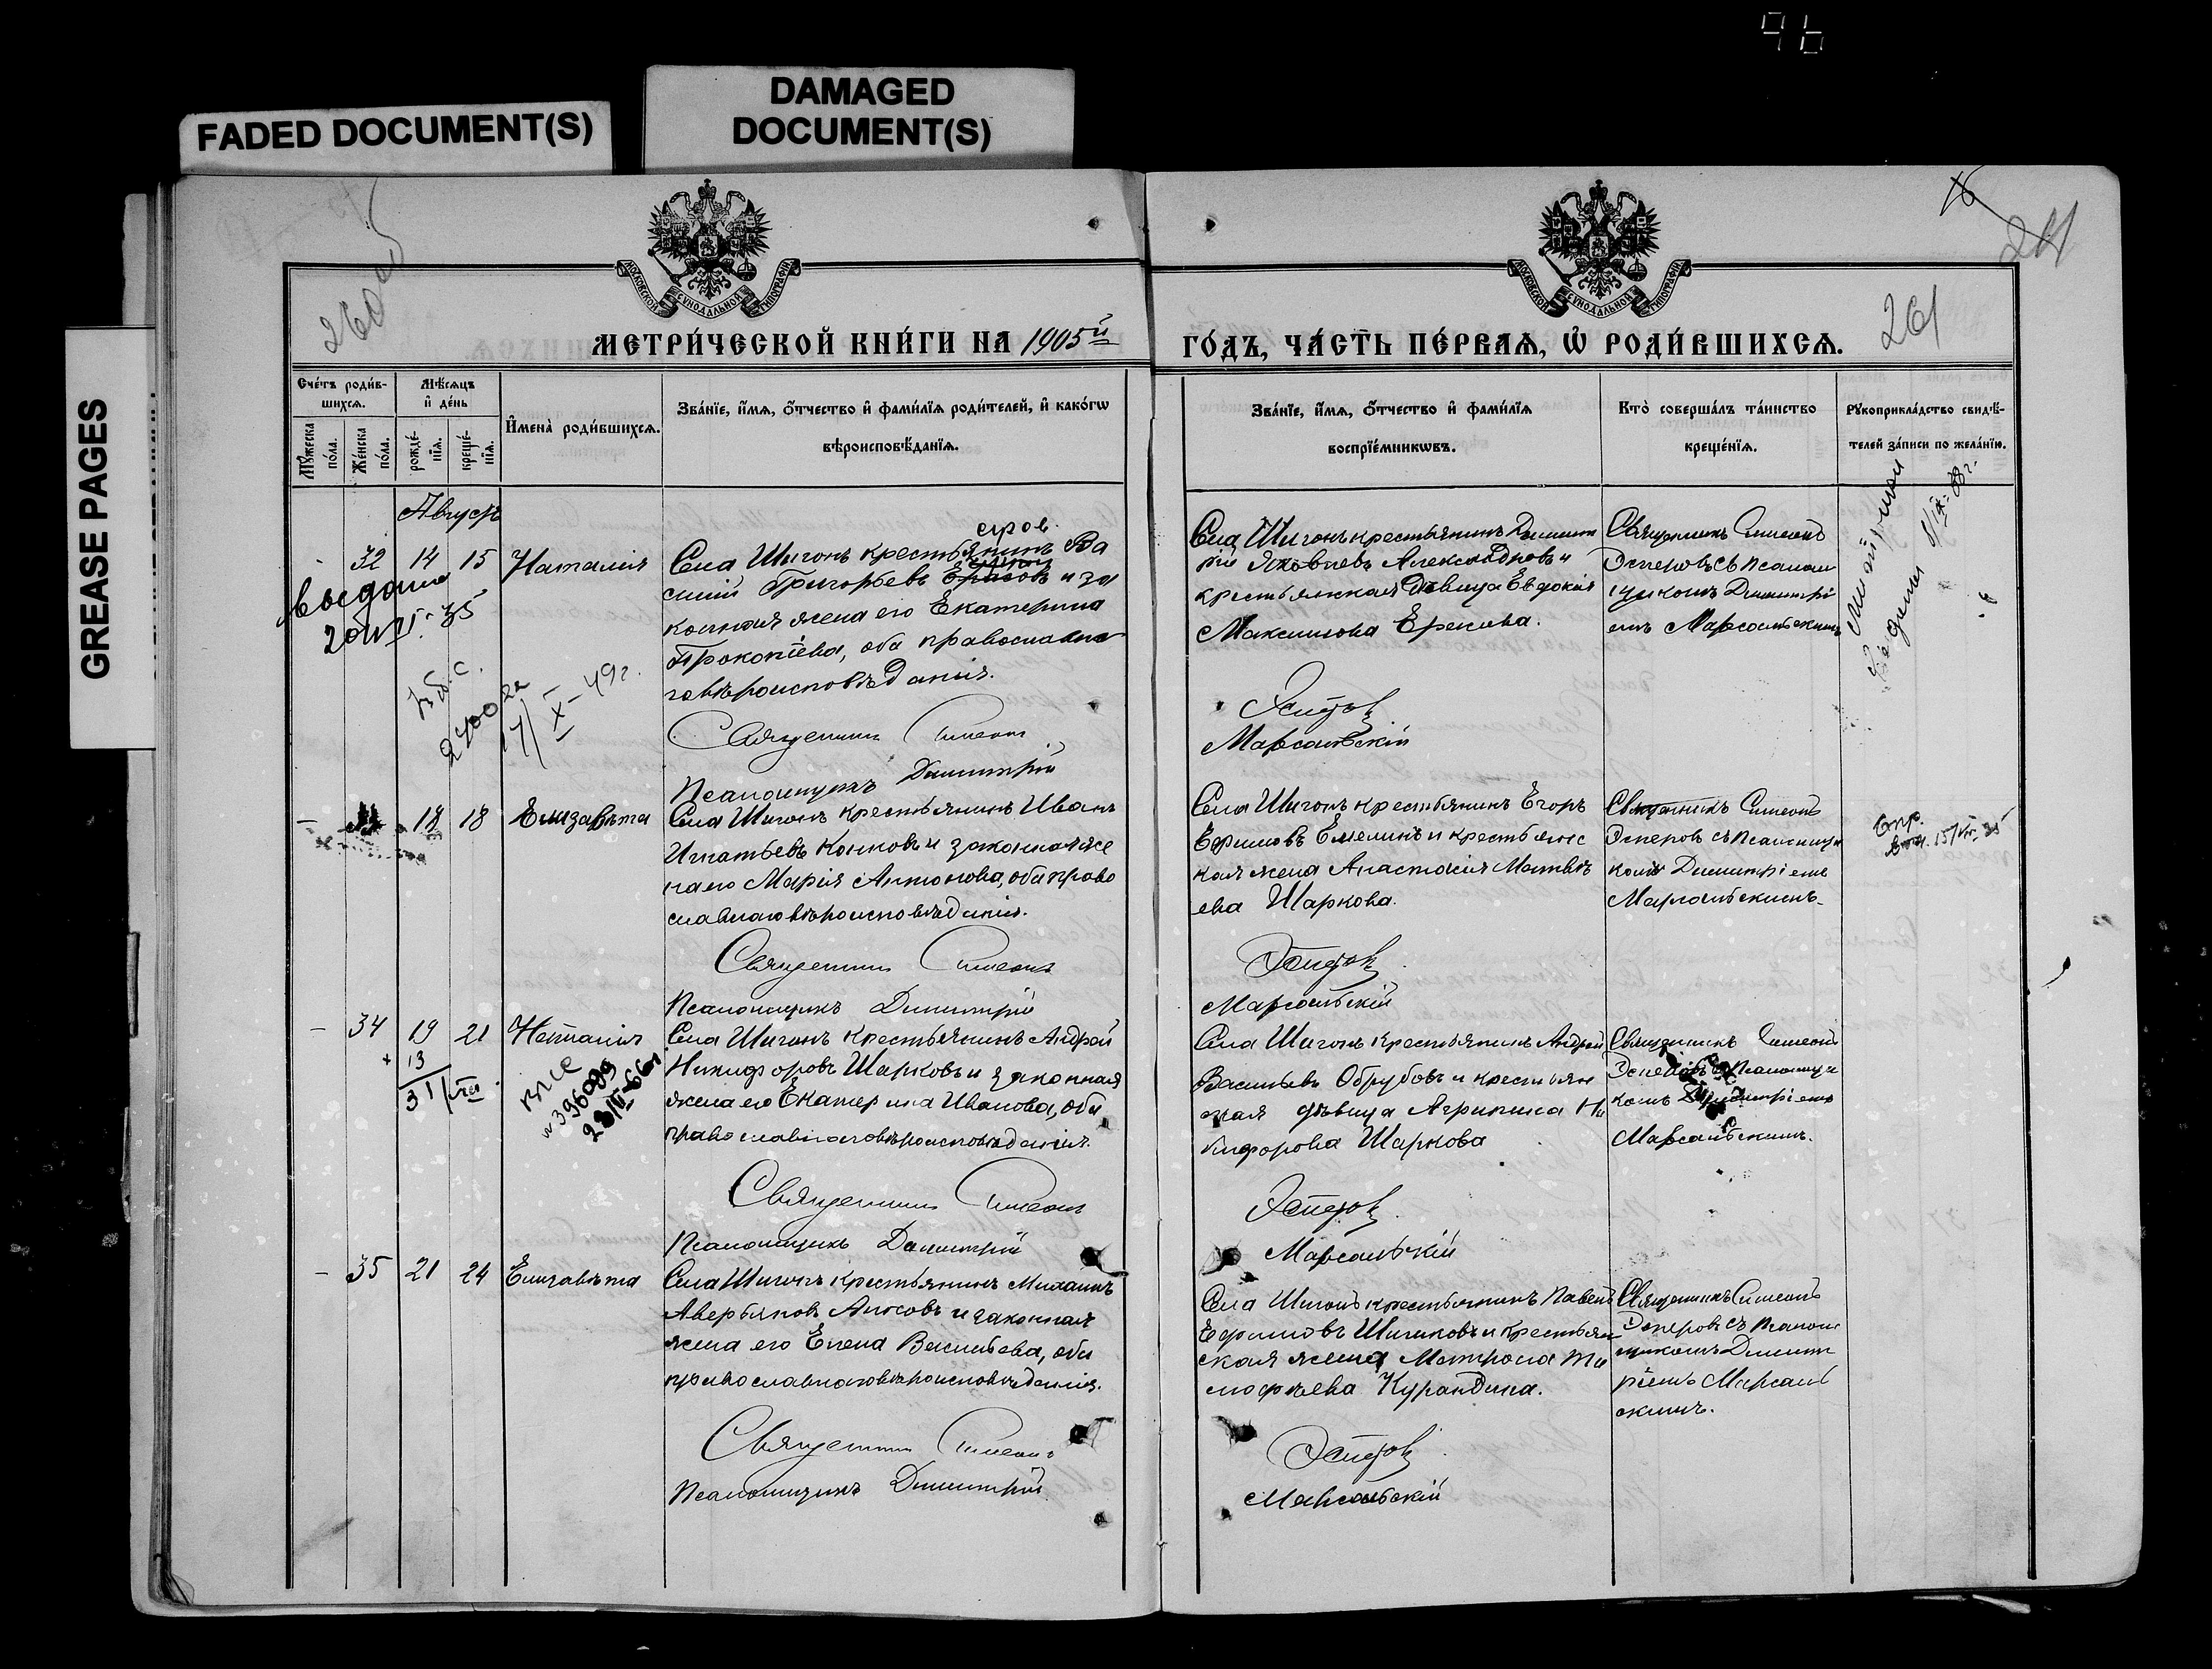 96
FADED DOCUMENT(S)
DAMAGED
DOCUMENT(S)
GREASE PAGES
260
МЕТРИ́ЧЕСКОЙ КНИ́ГИ НА 1905й
ГО́ДЪ, ЧА́СТЬ ПЕ́РВАѦ, Ѽ РОДИ́ВШИХСѦ.
261
МОСКОВСКОЙ СѴНОДАЛЬНОЙ ТИПОГРАФІИ
МОСКОВСКОЙ СѴНОДАЛЬНОЙ ТИПОГРАФІИ
Сче́тъ роди́в-
шихсѧ.
Мѣ́сѧцъ
и҆ де́нь
И҆мена̀ роди́вшихсѧ.
Зва́нїе, и҆́мѧ, ѻ҆́тчество и҆ фами́лїѧ роди́телей, и҆ како́гѡ
вѣроисповѣ́данїѧ.
Мꙋ́жеска
по́ла.
Же́нска
по́ла.
рожде́-
нїѧ.
креще́-
нїѧ.
Зва́нїе, и҆́мѧ, ѻ҆́тчество и҆ фами́лїѧ
воспрїе́мникѡвъ.
Кто̀ соверша́лъ та́инство
креще́нїѧ.
Рꙋкоприкла́дство свидѣ́-
телей за́писи по жела́нїю.
Августъ
32 14 15 Наталія
Села Шигонъ крестьянинъ Ва
силій Григорьевъ и за
конная жена его Екатерина
Прокопіева, оба православна
го вѣроисповѣданія.
Священникъ Симеонъ
Псаломщикъ Димитрій
Села Шигонъ крестьянинъ Димит
рій Яковлевъ Александровъ и
крестьянская дѣвица Евдокія
Максимова
Эсперовъ
Марсальскій
Священникъ Симеонъ
Эсперовъ съ псалом
щикомъ Димитрі
емъ Марсальскимъ
35
49 г.
18 18 Елизавѣта
Села Шигонъ крестьянинъ Иванъ
Игнатьевъ Конновъ и законная же
на его Марія Антонова, оба право
славнаго вѣроисповѣданія.
Священникъ Симеонъ
Псаломщикъ Димитрій
Села Шигонъ крестьянинъ Егоръ
Ефимовъ Емелинъ и крестьянс
кая жена Анастасія Матвѣ
ева Шаркова.
Эсперовъ
Марсальскій
Священникъ Симеонъ
Эсперовъ съ псаломщи
комъ Димитріемъ
Марсальскимъ.
15/VII 35
- 34 19 21 Наталія
Села Шигонъ крестьянинъ Андрей
Никифоровъ Шарковъ и законная
жена его Екатерина Иванова, оба
православнаго вѣроисповѣданія.
Священникъ Симеонъ
Псаломщикъ Димитрій
Села Шигонъ крестьянинъ Андрей
Васильевъ Обрубовъ и крестьян
ская дѣвица Агрипина Ни
кифорова Шаркова
Эсперовъ
Марсальскій
Священникъ Симеонъ
Эсперовъ съ псаломщи
комъ Димитріемъ
Марсальскимъ.
13
31/VII
396089
- 35 21 24 Елизавѣта
Села Шигонъ крестьянинъ Михаилъ
Аверьяновъ и законная
жена его Елена Васильева, оба
православнаго вѣроисповѣданія.
Священникъ Симеонъ
Псаломщикъ Димитрій
Села Шигонъ крестьянинъ Павелъ
Ефимовъ Шишковъ и крестьян
ская жена Матрона Ти
мофѣева Курандина.
Эсперовъ
Марсальскій
Священникъ Симеонъ
Эсперовъ съ псалом
щикомъ Димит
ріемъ Марсаль
скимъ.